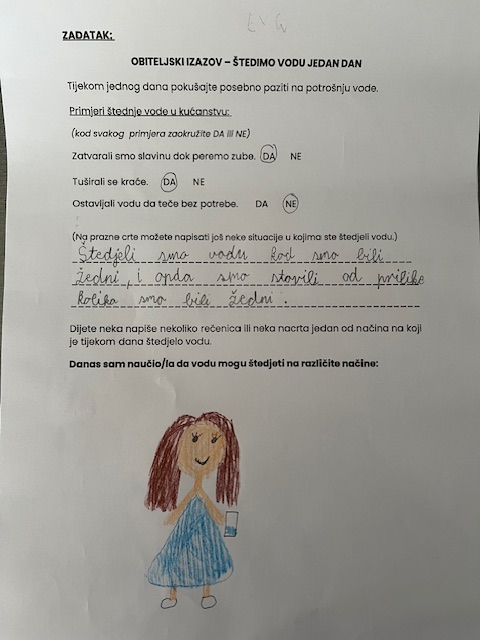 ZADATAK:
OBITELJSKI IZAZOV – ŠTEDIMO VODU JEDAN DAN
Tijekom jednog dana pokušajte posebno paziti na potrošnju vode.
Primjeri štednje vode u kućanstvu:
(kod svakog primjera zaokružite DA ili NE)
Zatvarali smo slavinu dok peremo zube. DA NE
Tuširali se kraće. DA NE
Ostavljali vodu da teče bez potrebe. DA NE
(Na prazne crte možete napisati još neke situacije u kojima ste štedjeli vodu.)
Štedjeli smo vodu kad smo bili
žedni, i onda smo stavili od prilike
kolika smo bili žedni.
Dijete neka napiše nekoliko rečenica ili neka nacrta jedan od načina na koji
je tijekom dana štedjelo vodu.
Danas sam naučio/la da vodu mogu štedjeti na različite načine: